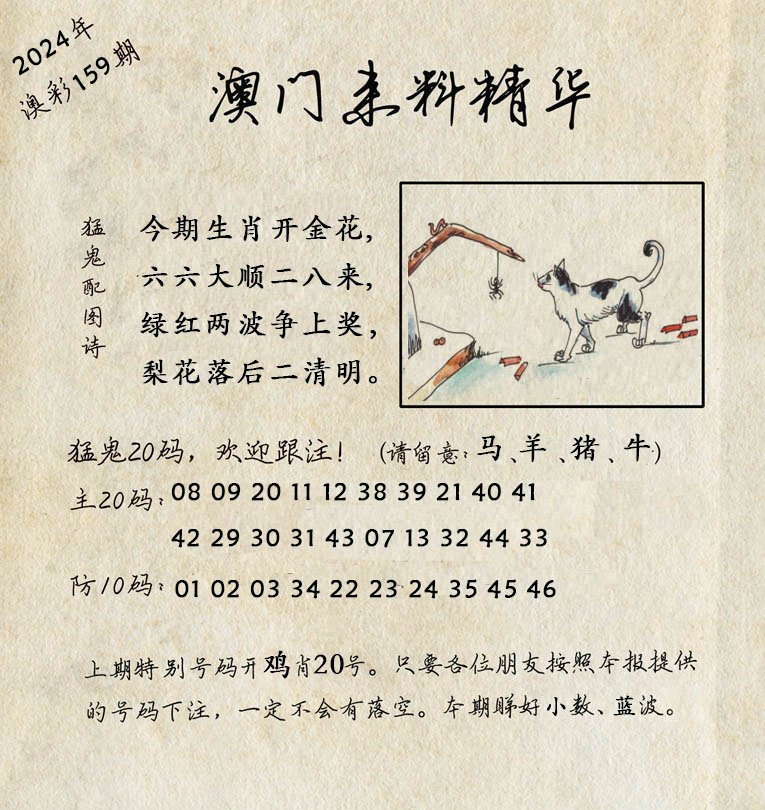 2024年
澳彩159期
澳门来料精华
猛鬼配图诗
今期生肖开金花，
六六大顺二八来，
绿红两波争上奖，
梨花落后二清明。
猛鬼20码，欢迎跟注！（请留意：马、羊、猪、牛）
主20码：08 09 20 11 12 38 39 21 40 41
42 29 30 31 43 07 13 32 44 33
防10码：01 02 03 34 22 23 24 35 45 46
上期特别号码开鸡肖20号。只要各位朋友按照本报提供
的号码下注，一定不会有落空。本期睇好小数、蓝波。